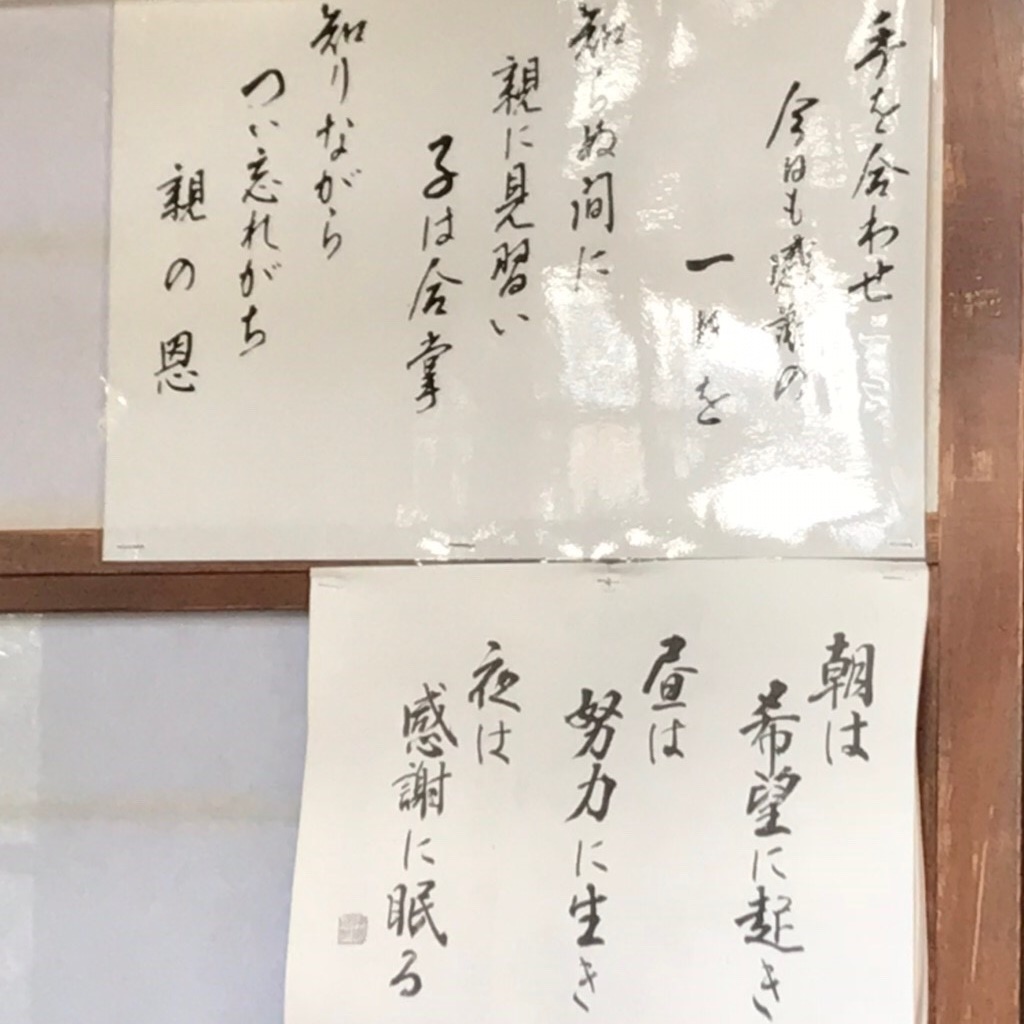 手を合わせ
今日も感謝の
一日を
知らぬ間に
親に見習い
子は合掌
知りながら
つい忘れがち
親の恩
朝は
希望に起き
昼は
努力に生き
夜は
感謝に眠る